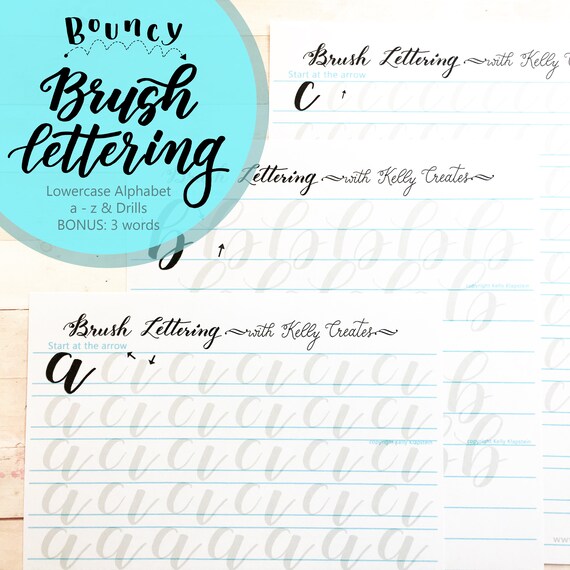 Bouncy
Brush
lettering
Lowercase Alphabet
a - z & Drills
BONUS: 3 words
Brush Lettering with Kelly Crea
Start at the arrow
c
Lettering with Kelly Creates
b b b b b b
b
copyright Kelly Klapstein
b
Brush Lettering with Kelly Creates
Start at the arrow
a a a a a a a
a a a a a a a
copyright Kelly Klapstein
copyright Kelly Klapstein
a a a a a a a
a a a a a a a
a a a a a a a
b
b
www